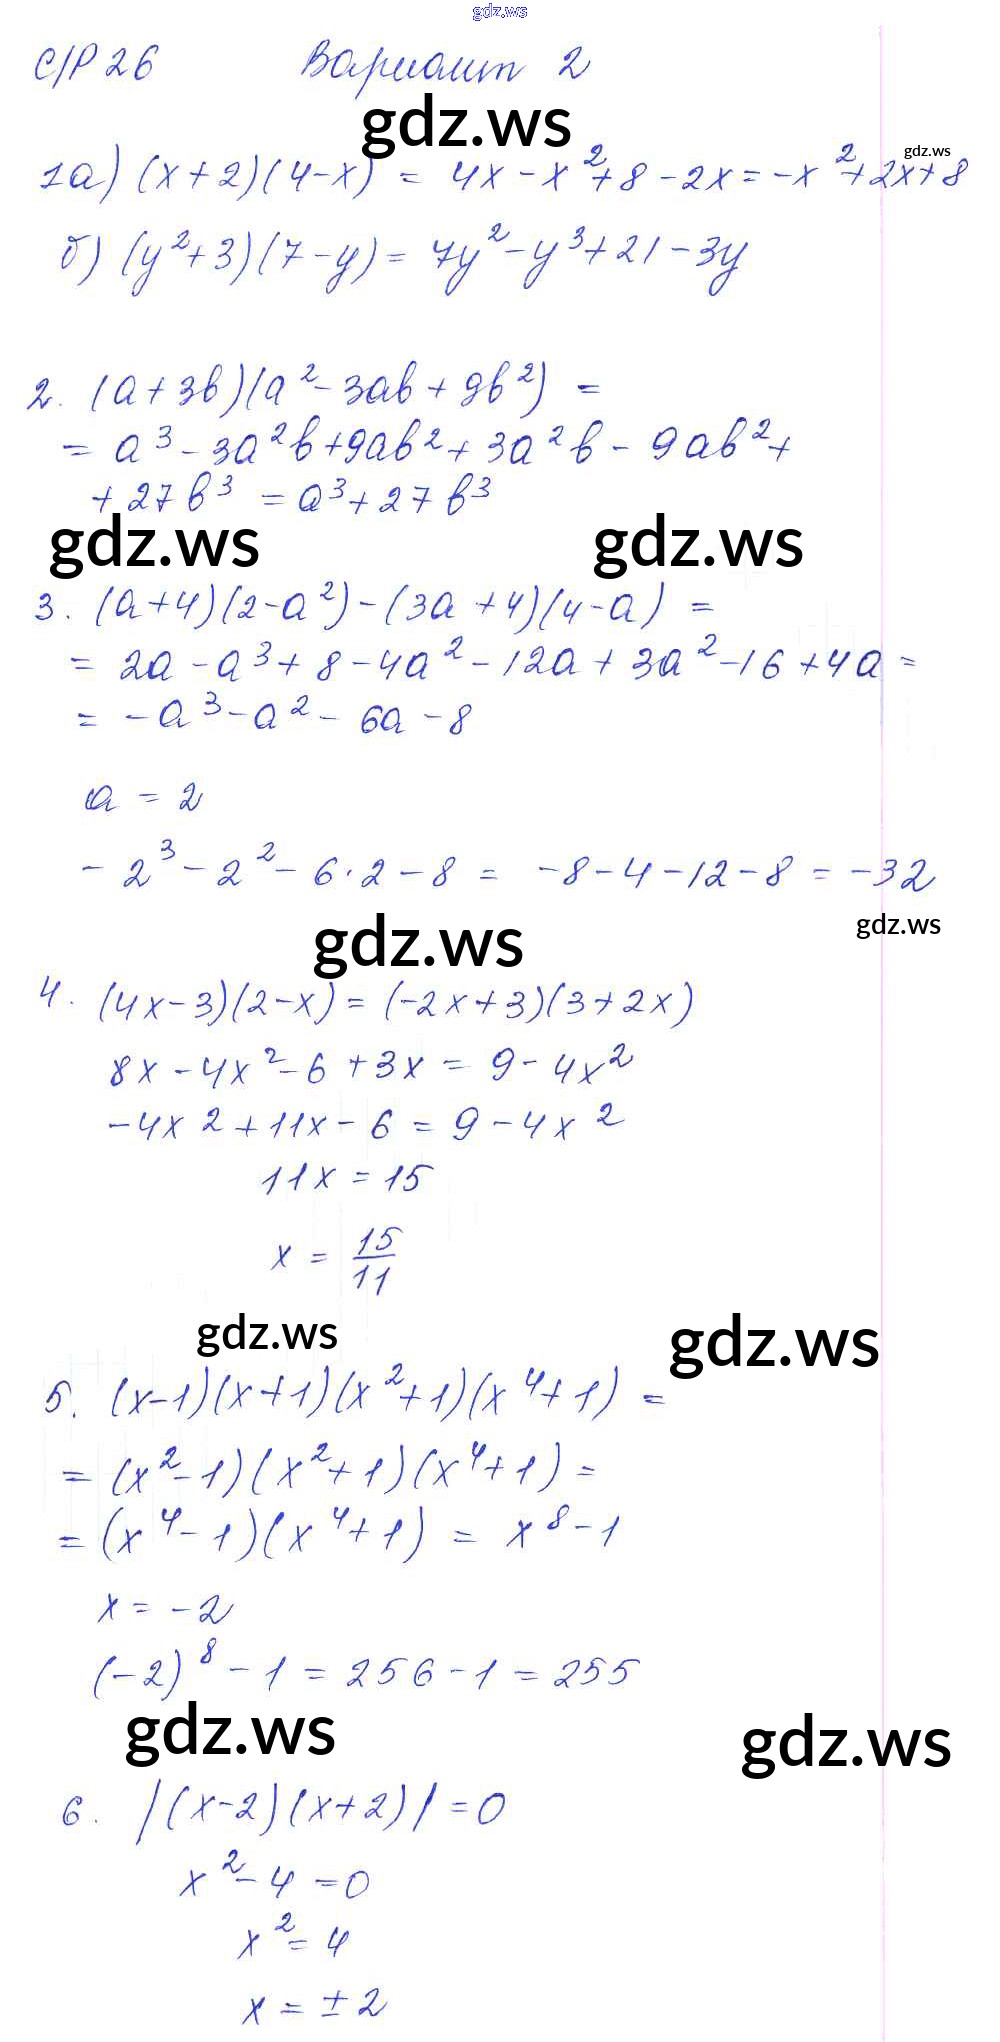 gdz.ws
С/Р 26 Вариант 2
gdz.ws
gdz.ws
1а) (x+2)(4-x) = 4x - x² + 8 - 2x = -x² + 2x + 8
б) (y²+3)(7-y) = 7y² - y³ + 21 - 3y
2. (a+3b)(a² - 3ab + 9b²) =
= a³ - 3a²b + 9ab² + 3a²b - 9ab² +
+ 27b³ = a³ + 27b³
gdz.ws gdz.ws
3. (a+4)(2-a²) - (3a+4)(4-a) =
= 2a - a³ + 8 - 4a² - 12a + 3a² - 16 + 4a =
= -a³ - a² - 6a - 8
a = 2
-2³ - 2² - 6·2 - 8 = -8 - 4 - 12 - 8 = -32
gdz.ws gdz.ws
4. (4x-3)(2-x) = (-2x+3)(3+2x)
8x - 4x² - 6 + 3x = 9 - 4x²
-4x² + 11x - 6 = 9 - 4x²
11x = 15
x = 15/11
gdz.ws gdz.ws
5. (x-1)(x+1)(x²+1)(x⁴+1) =
= (x²-1)(x²+1)(x⁴+1) =
= (x⁴-1)(x⁴+1) = x⁸ - 1
x = -2
(-2)⁸ - 1 = 256 - 1 = 255
gdz.ws gdz.ws
6. |(x-2)(x+2)| = 0
x² - 4 = 0
x² = 4
x = ±2